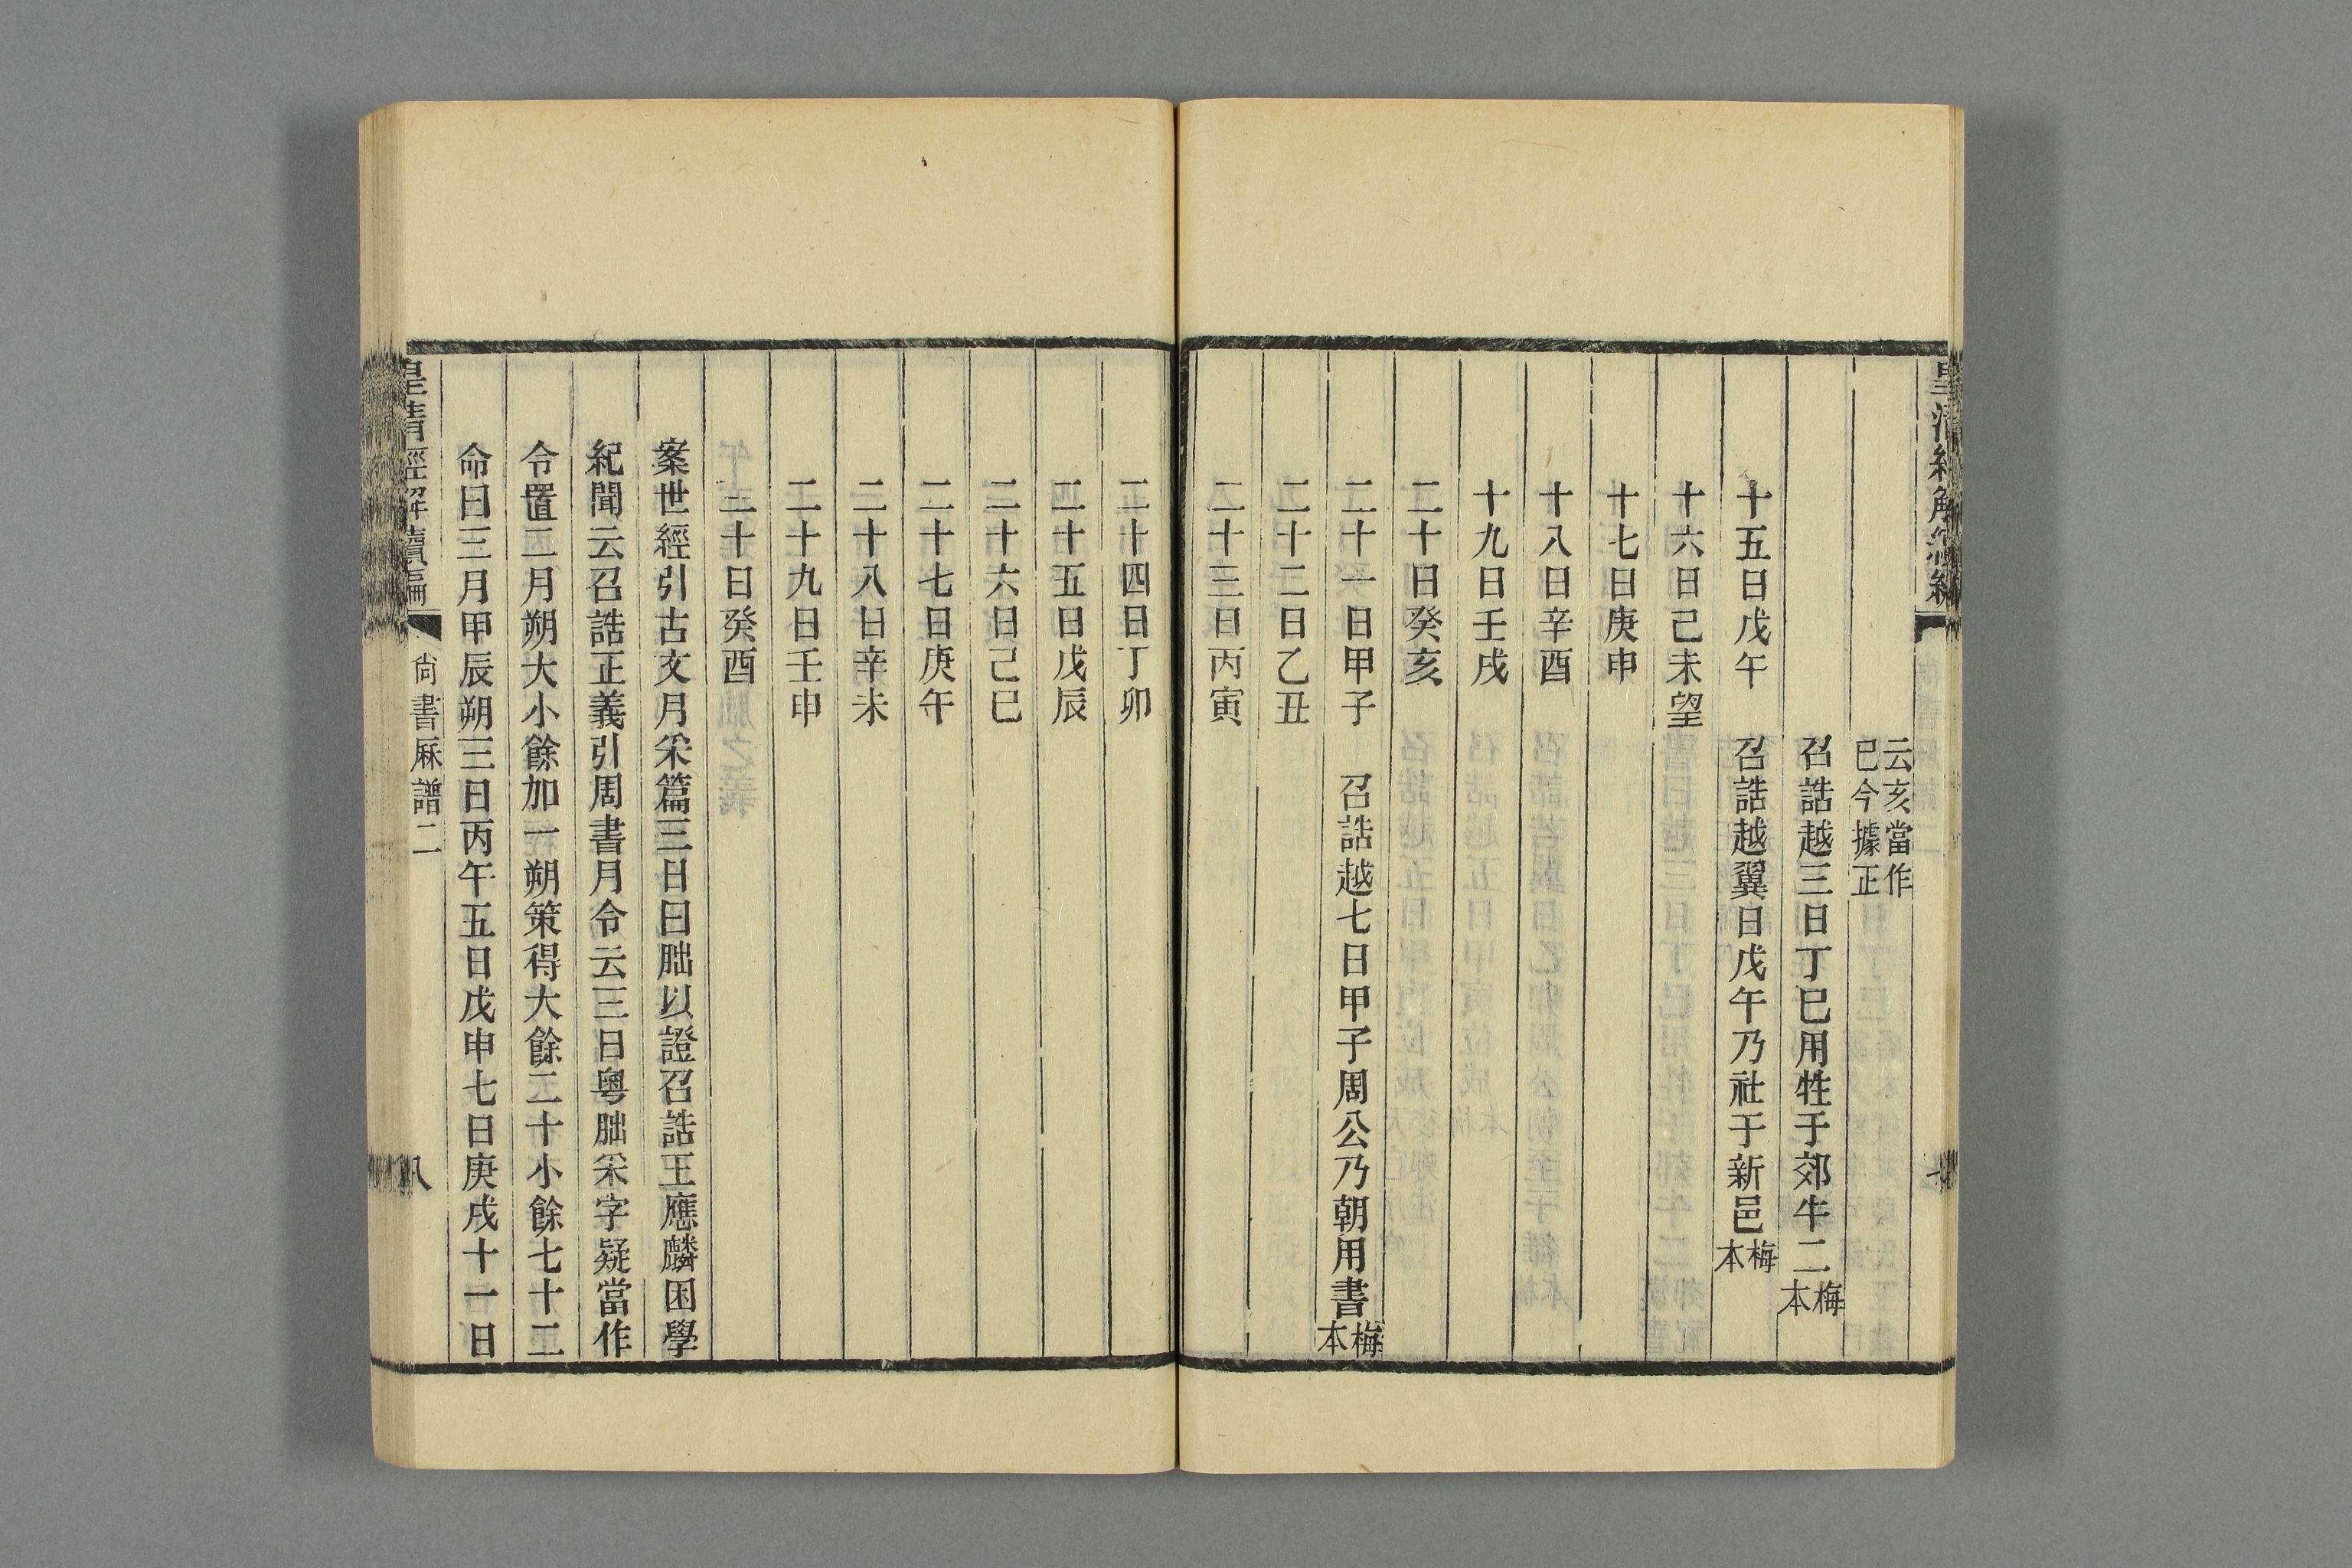 皇清經解續編
云亥當作
巳今據正
召誥越三日丁巳用牲于郊牛二梅本
十五日戊午　召誥越翼日戊午乃社于新邑梅本
十六日己未望
十七日庚申
十八日辛酉
十九日壬戌
二十日癸亥
二十一日甲子　召誥越七日甲子周公乃朝用書梅本
二十二日乙丑
二十三日丙寅
二十四日丁卯
二十五日戊辰
二十六日己巳
二十七日庚午
二十八日辛未
二十九日壬申
三十日癸酉
案世經引古文月采篇三日曰朏以證召誥王應麟困學
紀聞云召誥正義引周書月令云三日粵朏采字疑當作
令置二月朔大小餘加一朔策得大餘二十小餘七十二
命曰三月甲辰朔三日丙午五日戊申七日庚戌十一日
皇清經解續編　尚書厤譜二　八